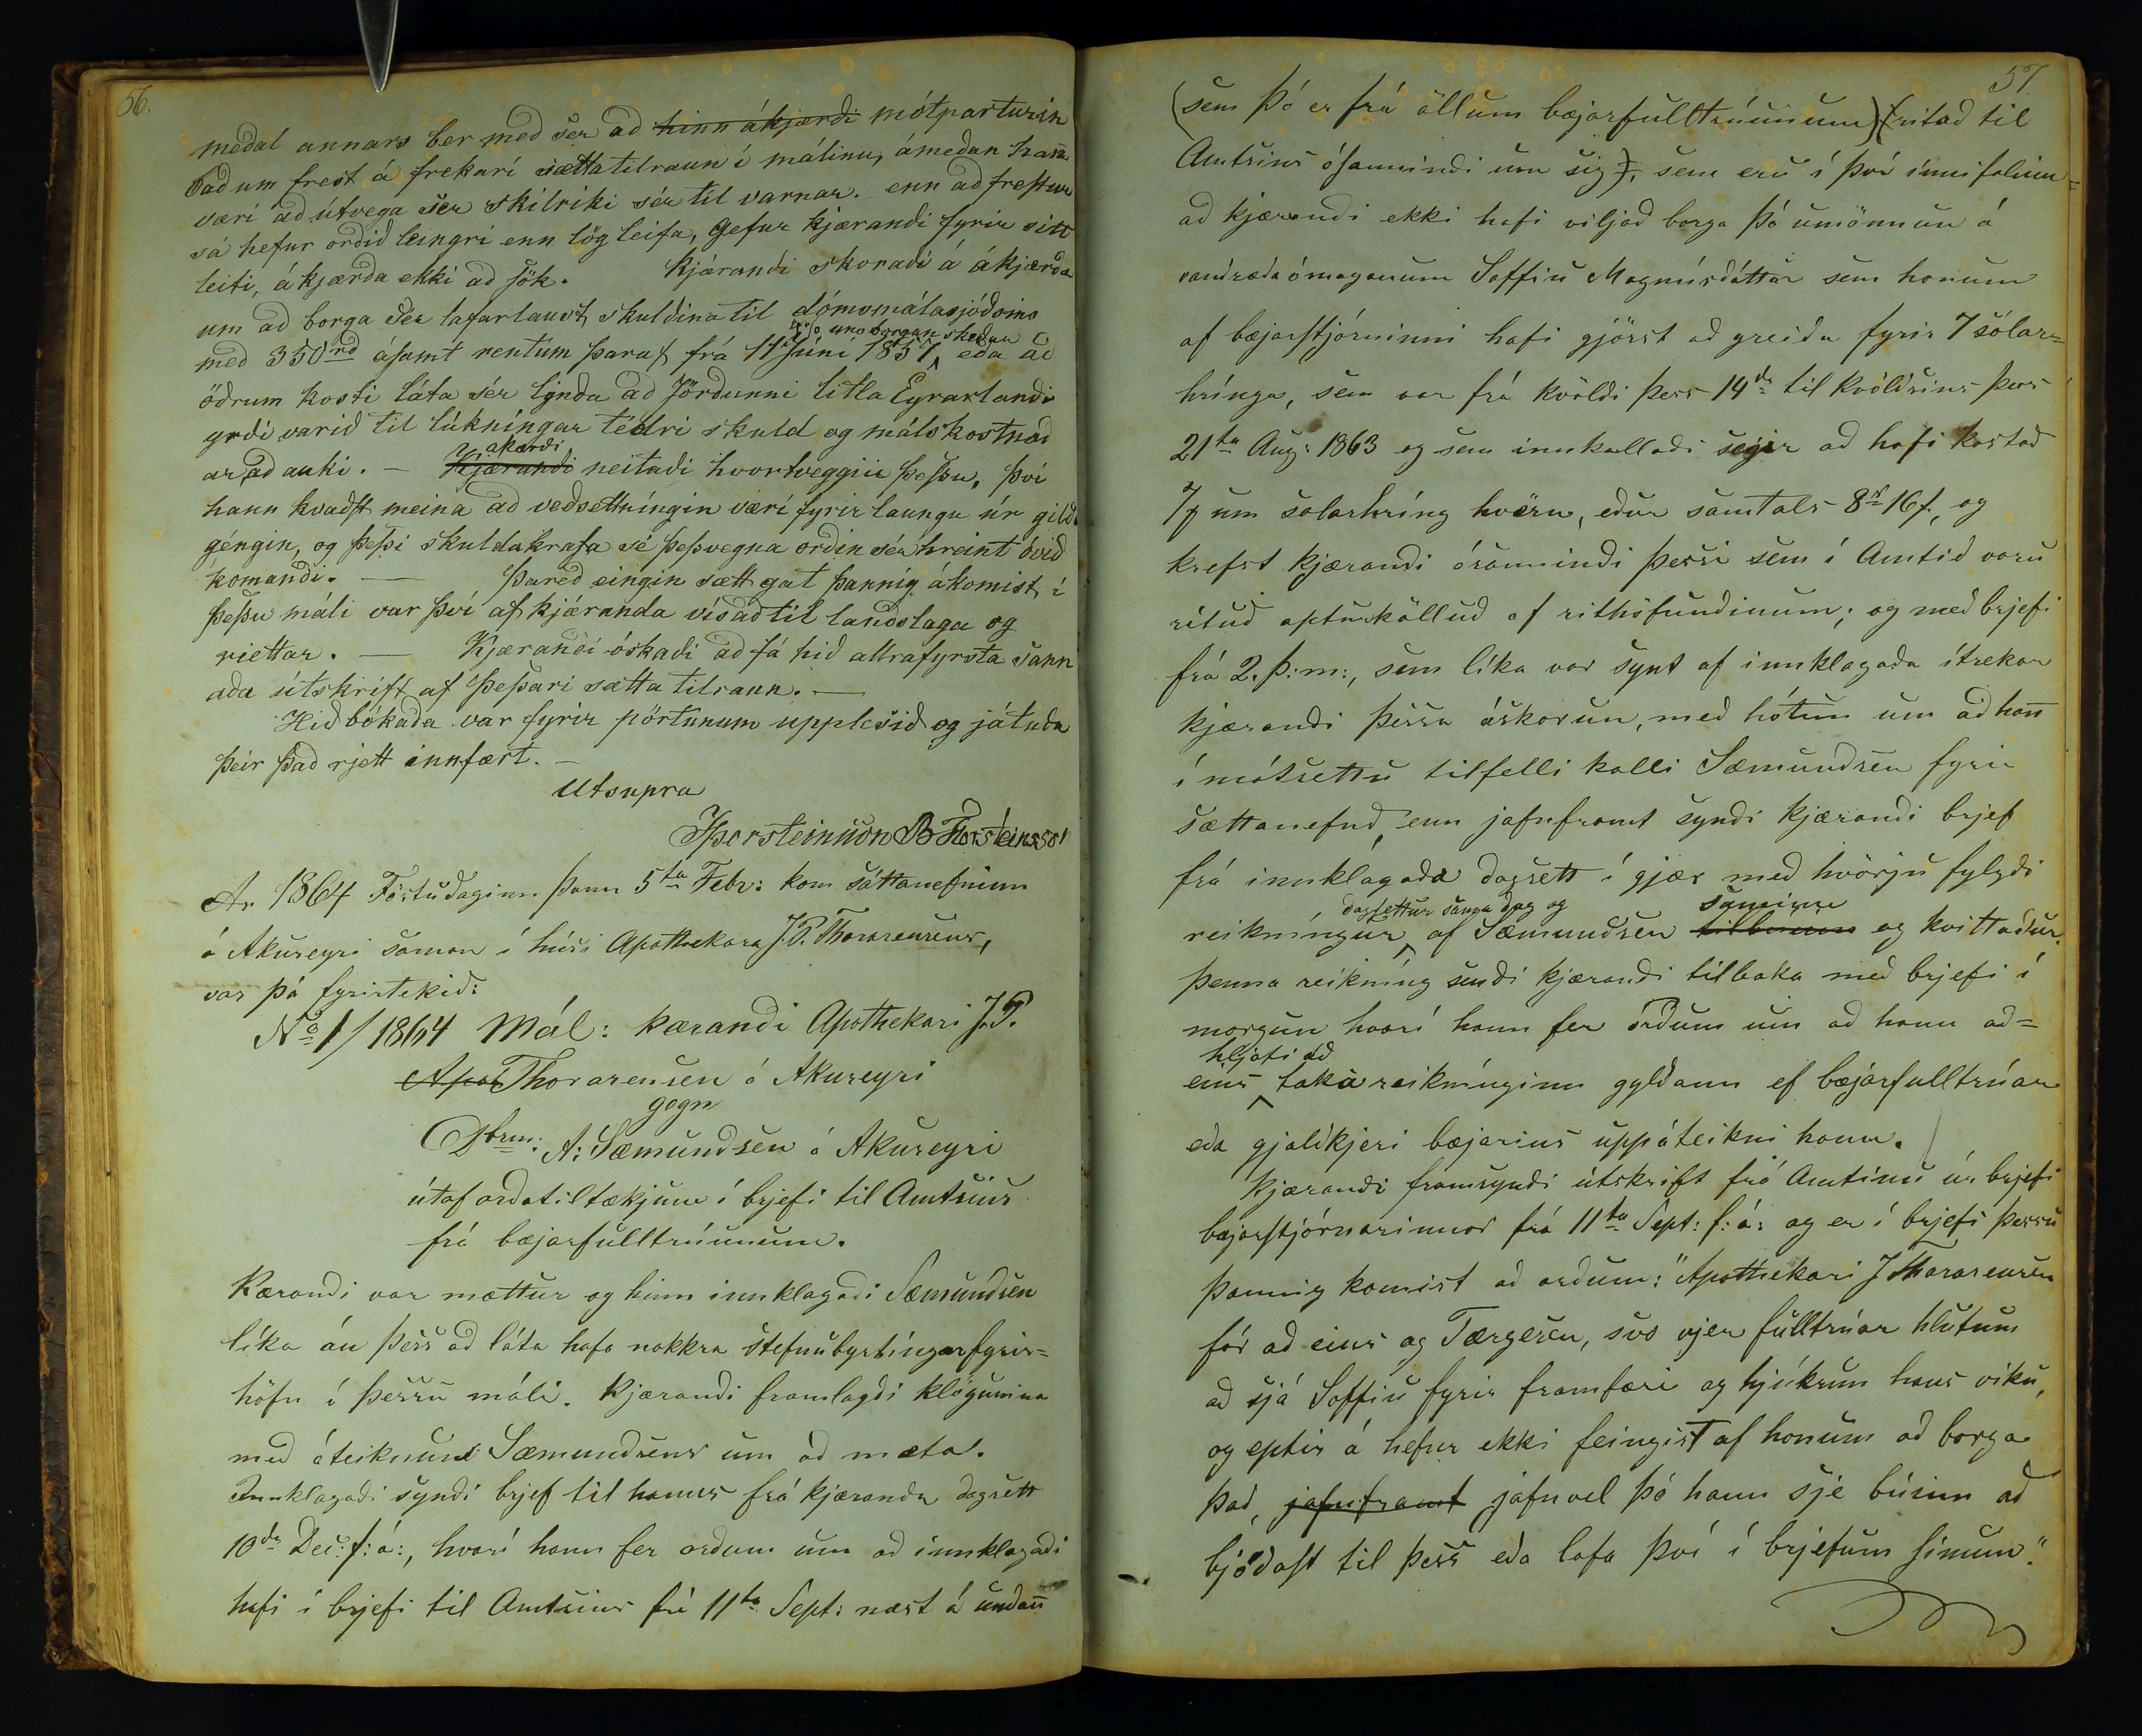 56.
medal annars ber med sèr ad hinn ákjærdi mótparturin
bad um frest á frekari sættatilraun í málinu, ámedan hann
væri ad útvega sèr skilriki sér til varnar. enn ad frestur
sá hefur ordid leingri enn lög leifa, gefur kjærandi fyrir sitt
leiti, ákjærda ekki ad sök. Kjærandi skoradi á ákjærda
um ad borga sèr lagarlaust skuldina til dómsmálasjódsins
4% uns borgun skedur
med 350rd ásamt rentum þaraf frá 11 Júní 1857, eda ad
ödrum kosti láta sér lynda ad Jördunni litla Eyrarlandi
yrdi varid til lúkníngar tedri skuld og málskostnad
ákærdi
ar ad auki. — Kjærandi neitadi hvortveggiu þessu, því
hann kvadst meina ad vedsettníngin væri fyrir laungu úr gildi
géngin, og þessi skuldakrafa sé þessvegna ordin sér hreint óvid
komandi. — Þared eingin sætt gat þannig ákomist í
þessu máli var því af kjæranda vísad til landslaga og
riettar. — Kjærandi óskadi ad fá hid allrafyrsta sann
ada útskrift af þessari sætta tilraun. —
Hid bókada var fyrir pörtunum upplesid og játudu
þeir þad rjett innfært. —
Utsupra
JÞorsteinsson B Thorsteinsson
Ar 1864 Föstudaginn þann 5ta Febr: kom sáttanefninn
á Akureyri saman í húsi Apothekara J.P. Thorarensens,
var þá fyrirtekid:
No 1/1864 Mál: kærandi Apothekari J.P.
Apot Thorarensen á Akureyri
gegn
Dbrm: A: Sæmundsen á Akureyri
útaf ordatiltækjum í brjefi til Amtsins
frá bæjarfulltrúunum.
Kærandi var mættur og hinn innklagadi Sæmundsen
líka án þess ad láta hafa nokkra stefnubyrtíngarfyrir=
höfn í þessu máli. Kjærandi framlagdi klögunina
med áteiknun Sæmundsens um ad mæta.
Innklagadi syndi brjef til hanns frá kjæranda dagsett
10da Dec: f: á:, hvari hann fer ordum um ad innklagadi
hafi í brjefi til Amtsins frá 11ta Sept: næst á undan
57.
(sem þó er frá öllum bæjarfulltrúunum) (ritad til
Amtsins ósannindi um sig), sem eru í því innifalinn=
ad kjærandi ekki hafi viljad borga þá umönnun á
vandrædaómaganum Soffiu Magnúsdóttur sem honum
af bæjarstjórninni hafi gjörst ad greida fyrir 7 sólar=
hrínga, sem var frá kvöldi þess 14da til kvöldsins þess
21ta Aug: 1863 og sem innkalladi segir ad hafi kostad
7f um solarhríng hvörn, edur samtals 8rd 16f, og
krefst kjærandi ósannindi þessi sem í Amtid voru
ritud apturkøllud af rithöfundinum; og med brjefi
frá 2. þ: m:, sem líka var synt af innklagada ítrekar
kjærandi þessa áskorun, med hótun um ad hann
í mótsettu tilfelli kalli Sæmundsen fyrir
sættanefnd, enn jafnframt syndi kjærandi brjef
frá innklagada dagsett í gjær med hvörju fylgdi
dagsettur sama dag og
reikníngur af Sæmundsen og kvittadur.
þenna reikníng sendi kjærandi tilbaka med brjefi í
morgun hvari hann fer ordum um ad hann ad=
hljóti ad
eins taka reikninginn gyldann ef bæjarfulltrúar
eda gjaldkjeri bæjarins uppáteikni hann.
Kjærandi framsyndi útskrift frá Amtinu úr brjefi
bæjarstjórnarinnar frá 11ta Sept: f: á: og er í brjefi þessu
þannig komist ad ordum: "Apothekari J Thorarensen
fór ad eins og Tærgesen, svo vjer fulltrúar hlutum
ad sjá Soffiu fyrir framfæri og hjúkrun hans viku,
og eptir á hefur ekki feingist af honum ad borga
þad, jafnframt jafnvel þó hann sje búinn ad
bjódast til þess eda lofa því í brjefum sínum".